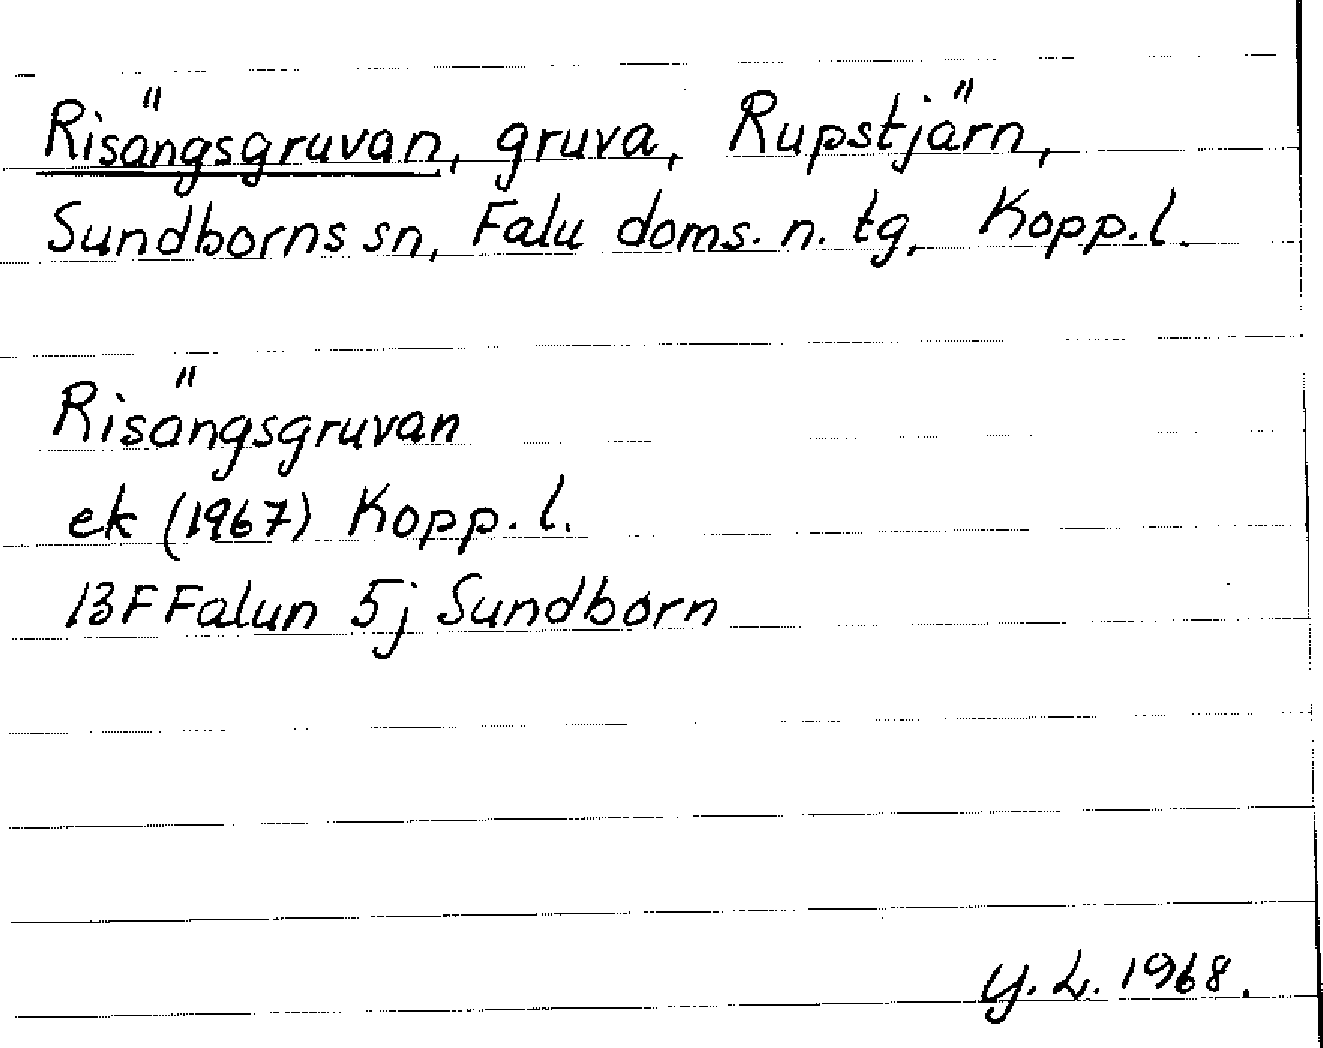 Risängsgruvan, gruva, Rupstjärn,
Sundborns sn, Falu doms. n. tg, Kopp. l.
Risängsgruvan
ek (1967) Kopp. l.
13F Falun 5j Sundborn
Y. L. 1968.